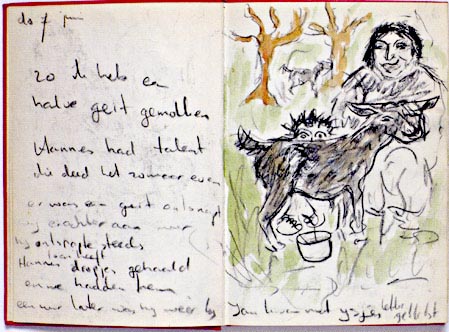 do 7 juni
zo ik heb een
halve geit gemolken
Hannes had talent
die deed het zomaar even
er was een geit ontsnapt
hij erachter aan maar
hij ontsnapte steeds
Hannes dropjes gehaald
en we hadden hem
een uur later was hij weer
Jan met